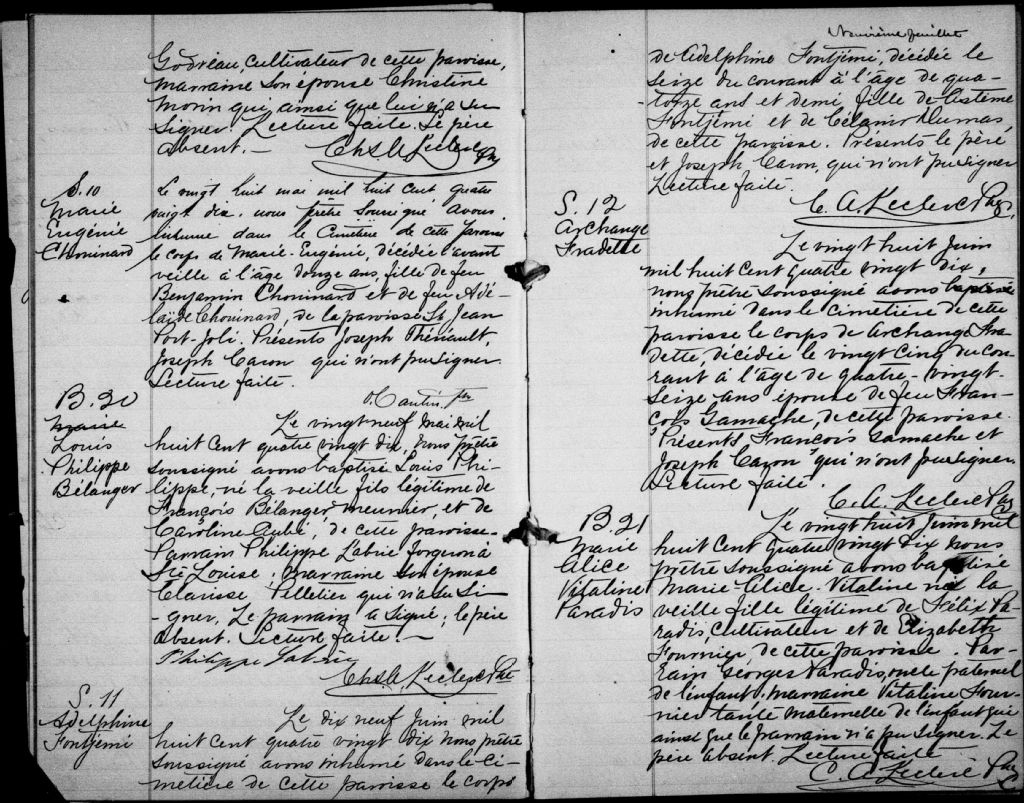 Godreau, cultivateur de cette paroisse,
marraine son épouse Christine
Morin qui ainsi que lui n'a su
signer. Lecture faite. Le père
absent. —
Chs A. Leclerc Ptr
S. 10
Marie
Eugénie
Chouinard
Le vingt huit mai mil huit cent quatre
vingt dix, nous prêtre soussigné avons
inhumé dans le Cimetière de cette paroisse
le corps de Marie-Eugénie, décédée l'avant
veille à l'âge douze ans, fille de feu
Benjamin Chouinard et de feu Adé-
laïde Chouinard, de la paroisse St Jean
Port-Joli. Présents Joseph Thériault,
Joseph Caron qui n'ont pu signer.
Lecture faite.
B. 20
Marie
Louis
Philippe
Bélanger
Le vingt neuf mai mil
huit cent quatre vingt dix, nous prêtre
soussigné avons baptisé Louis Phi-
lippe, né la veille fils légitime de
François Bélanger meunier, et de
Caroline Aubé, de cette paroisse.
Parrain Philippe Labrie forgeron à
Ste Louise, marraine son épouse
Clarisse Pelletier qui n'a su si-
gner. Le parrain a signé; le père
absent. Lecture faite. —
Philippe Labrie
Chs A. Leclerc Ptr
S. 11
Adelphine
Fontjemi
Le dix neuf Juin mil
huit cent quatre vingt dix nous prêtre
soussigné avons inhumé dans le ci-
metière de cette paroisse le corps
Neuvième feuillet
de Adelphine Fontjémi, décédée le
seize du courant à l'âge de qua-
torze ans et demi fille de
Fontjémi et de Dumas,
de cette paroisse. Présents le père
et Joseph Caron, qui n'ont pu signer
Lecture faite.
C. A. Leclerc Ptr,
S. 12
Archange
Fradette
Le vingt huit Juin
mil huit cent quatre vingt dix,
nous prêtre soussigné avons baptisé
inhumé dans le cimetière de cette
paroisse le corps de Archange Fra-
dette, décédée le vingt cinq du cou-
rant à l'âge de quatre-vingt-
seize ans épouse de feu Fran-
çois Gamache, de cette paroisse.
Présents François Gamache et
Joseph Caron qui n'ont pu signer.
Lecture faite.
C. A. Leclerc Ptr
B. 21
Marie
Alice
Vitaline
Paradis
Le vingt huit Juin mil
huit cent quatre vingt dix nous
prêtre soussigné avons baptisé
Marie-Alice-Vitaline née la
veille fille légitime de Félix Pa-
radis, cultivateur et de Elizabeth
Fournier, de cette paroisse. Par-
rain Georges Paradis, oncle paternel
de l'enfant, marraine Vitaline Four-
nier tante maternelle de l'enfant qui
ainsi que le parrain n'a pu signer. Le
père absent. Lecture faite
C. A. Leclerc Ptr